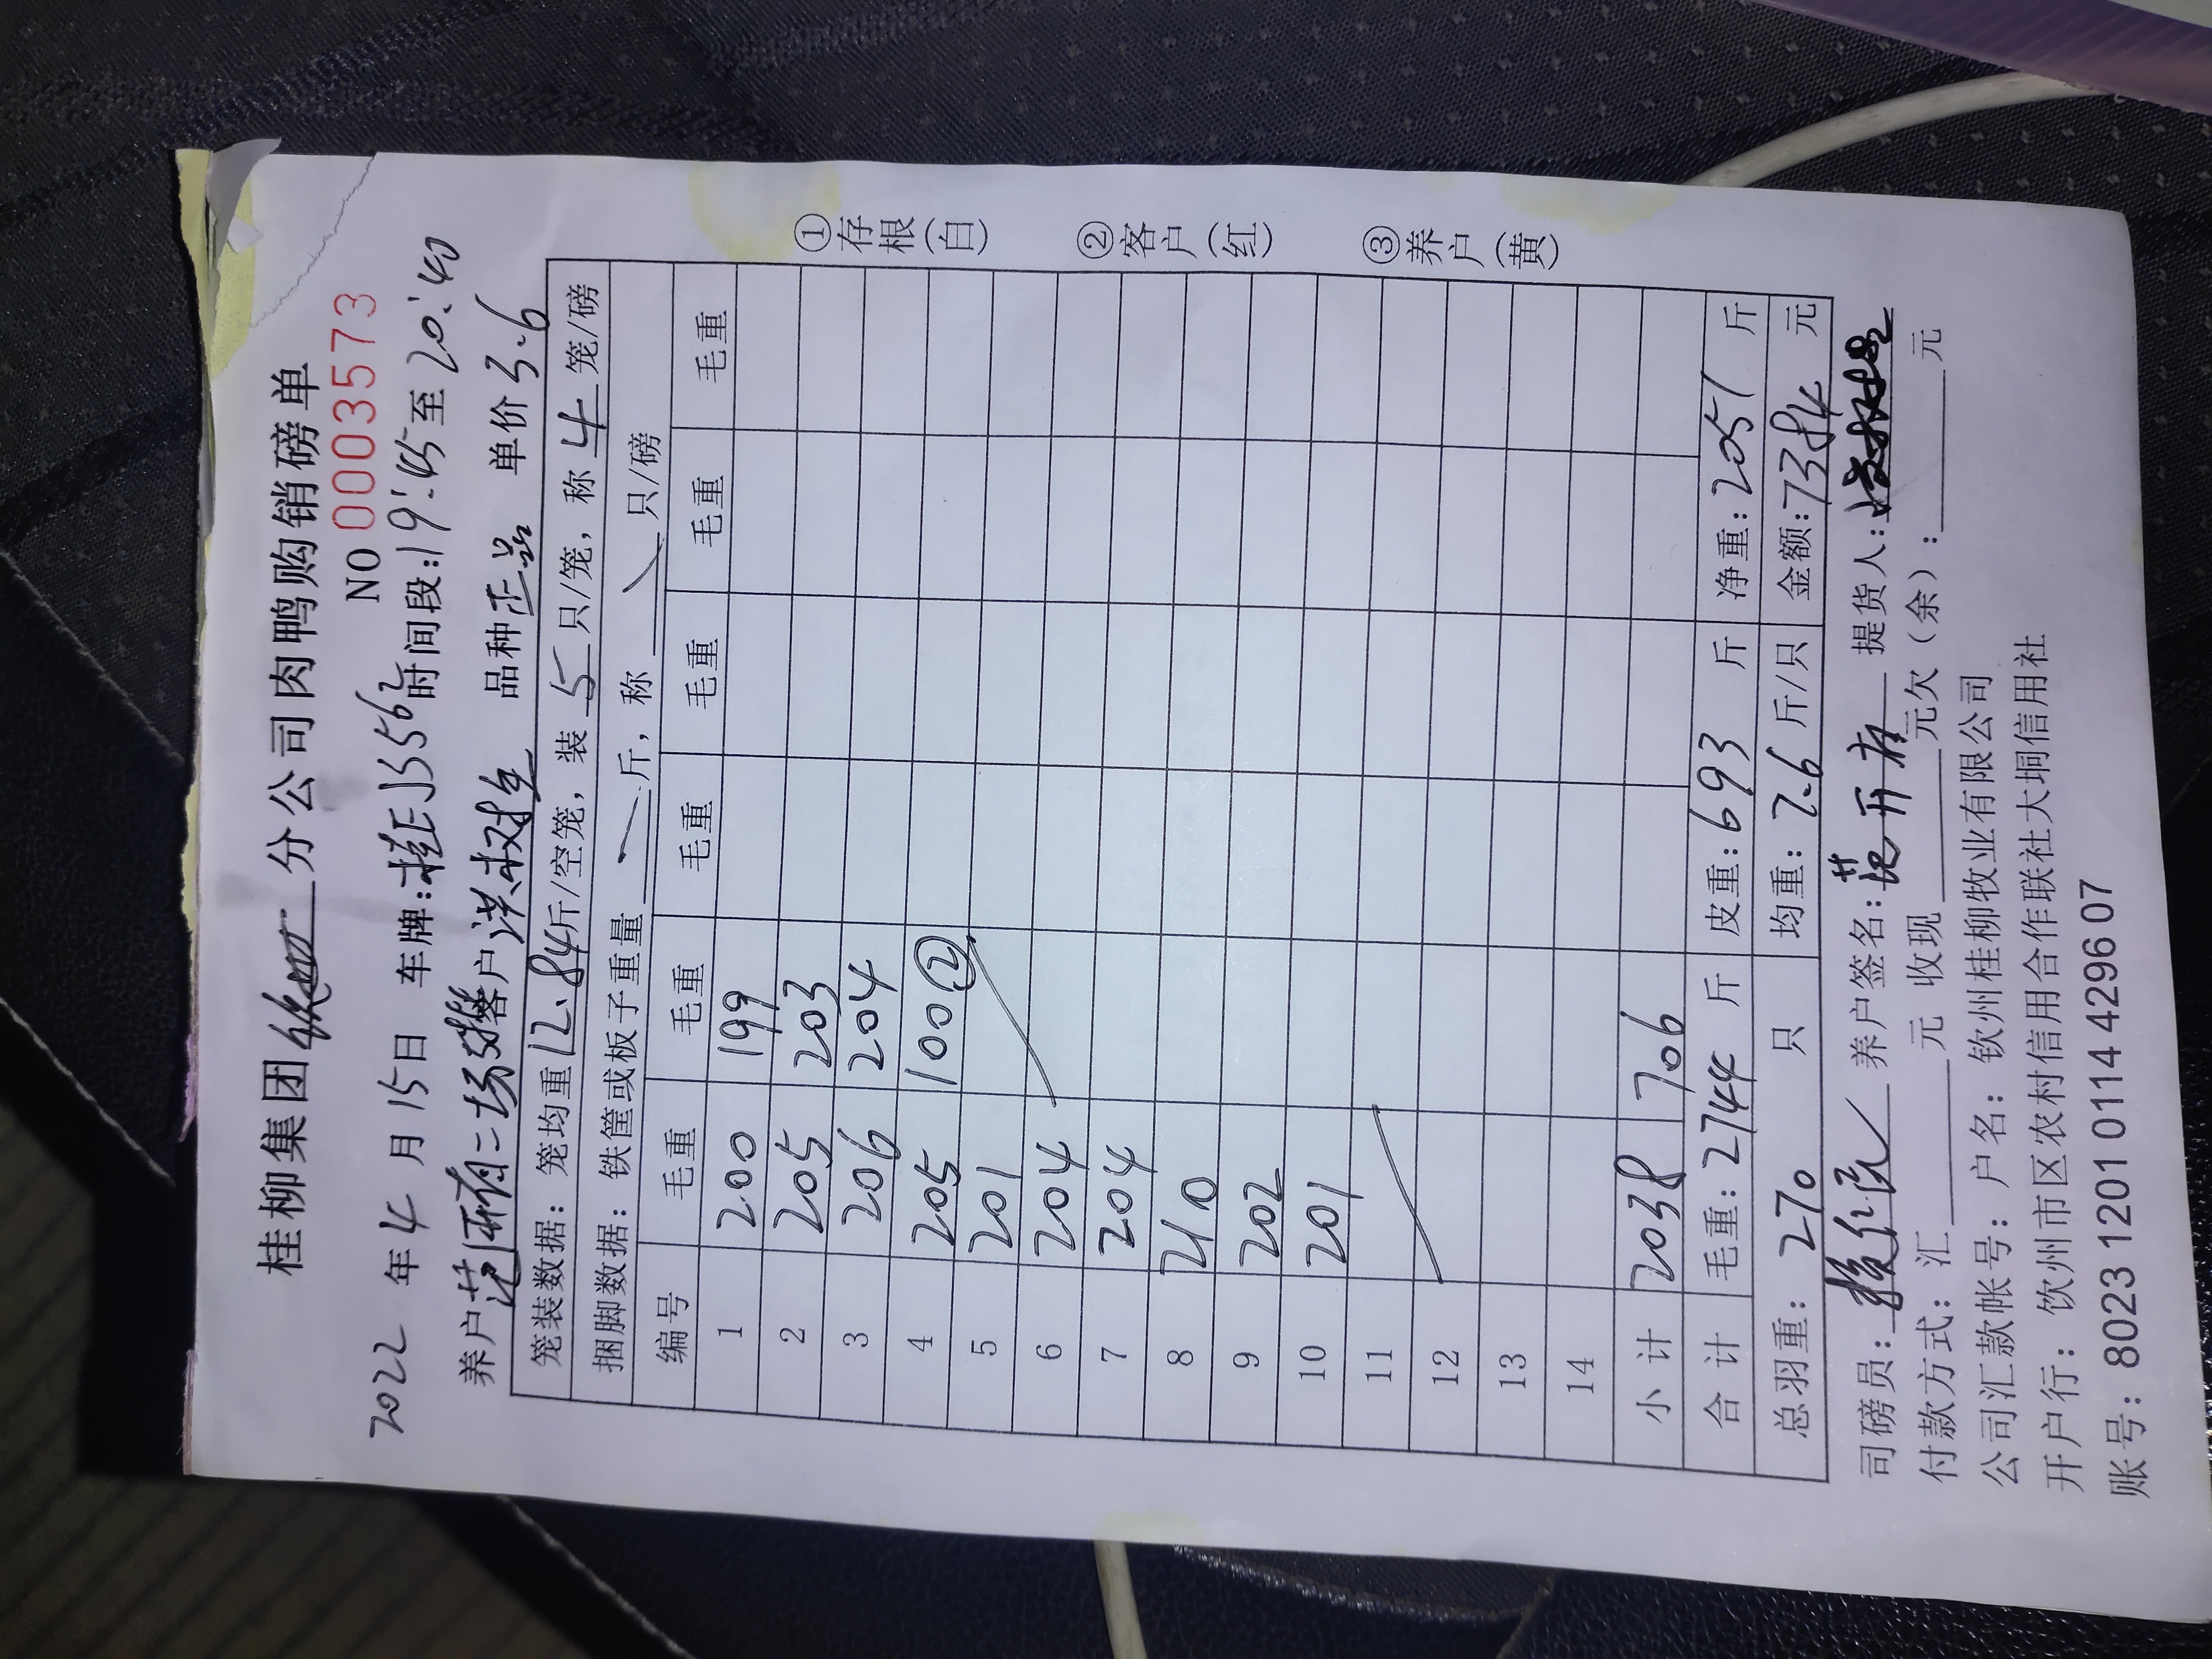 桂柳集团 分公司肉鸭购销磅单
NO 0003573
2022 年 4 月 15 日 车牌:桂EJS562 时间段:19:45 至 20:40
养户 范开有二场 客户 洪树生 品种 正品 单价 3.6
笼装数据: 笼均重 12.84 斤/空笼, 装 5 只/笼, 称 4 笼/磅
捆脚数据: 铁筐或板子重量 斤, 称 只/磅
编号 毛重 毛重 毛重 毛重 毛重 毛重
1 200 199
2 205 203
3 206 204
4 205 100②
5 201
6 204
7 204
8 210
9 202
10 201
11
12
13
14
小 计 2038 706
合 计 毛重: 2744 斤 皮重: 693 斤 净重: 2051 斤
总羽重: 270 只 均重: 7.6 斤/只 金额: 7384 元
司磅员: 养户签名: 范开有 提货人:
付款方式: 汇 元 收现 元欠(余): 元
公司汇款帐号: 户名: 钦州桂柳牧业有限公司
开户行: 钦州市区农村信用合作联社大垌信用社
账号: 8023 1201 0114 4296 07
①存根(白)
②客户(红)
③养户(黄)